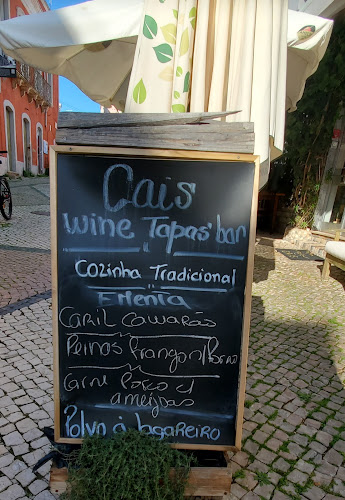 Cais
Wine Tapas bar
Cozinha Tradicional
Ementa
Caril Camarão
Peinos Frango n/ Forno
Carne Porco c/
ameijoas
Polvo à lagareiro